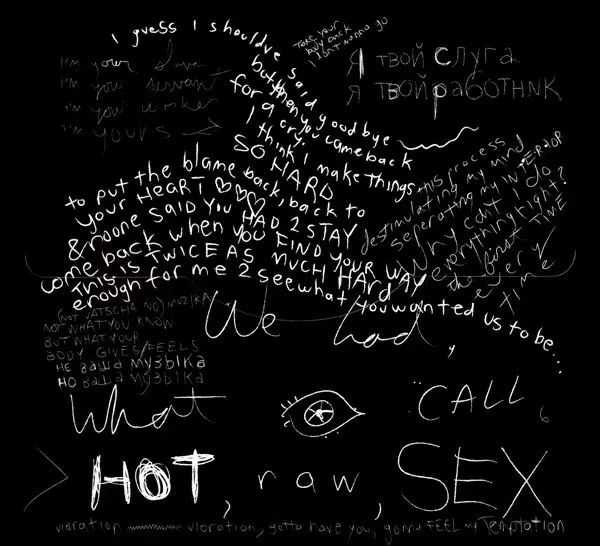 I guess I should've said goodbye
but then you came back
for a cry.
I think I make things
SO HARD
Take your
body back
I ISN'T wanna go
Я ТВОЙ СЛУГА
Я ТВОЙ РАБОТНІК
I'm your slave
I'm your servant
I'm your worker
I'm yours
to put the blame back, back to
your HEART ♡♡♡
& NOONE SAID YOU HAD 2 STAY
come back when you FIND YOUR WAY
THIS is TWICE AS MUCH HARD
enough for me 2 see what you wanted us to be...
this process
destimulating my mind
seperating my INTERIOR
Why can't I do
everything right?
the first TIME
every
time
(NOT VATSCHA NO) MUZIKA
NOT WHAT YOU KNOW
BUT WHAT YOUR
BODY GIVES/FEELS
НЕ ваша МУЗЫКА
НО ваша МУЗЫКА
We had,
What I CALL
HOT, raw, SEX
vibration vibration, gotta have you, gonna FEEL my Temptation